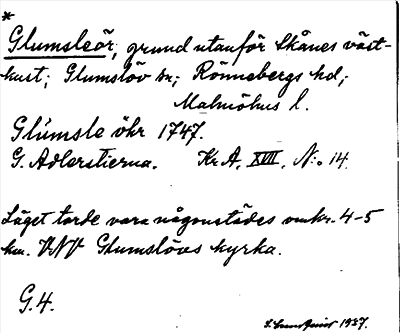 *
Glumsleör, grund utanför Skånes väst-
kust; Glumslöv sn; Rönnebergs hd;
Malmöhus l.
Glúmsle öhr 1747.
G. Adlerstierna. Kr.A. XVIII. N:o 14.
Läget torde vara någonstädes omkr. 4-5
km. VNV Glumslövs kyrka.
G.4.
1937.